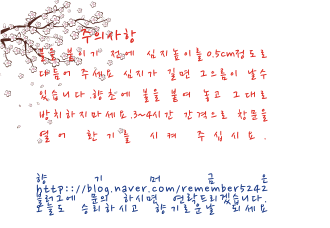 주의사항
불을 붙이기 전에 심지높이를 0.5cm정도로
다듬어 주세요 심지가 길면 그으름이 날수
있습니다.향초에 불을 붙여 놓고 그대로
방치하지마세요.3~4시간 간격으로 창문을
열어 환기를 시켜 주십시요.
향기머금은
http:://blog.naver.com/remember5242
블러그에 문의 하시면 연락드리겠습니다.
오늘도 승리하시고 향기로운날 되세요